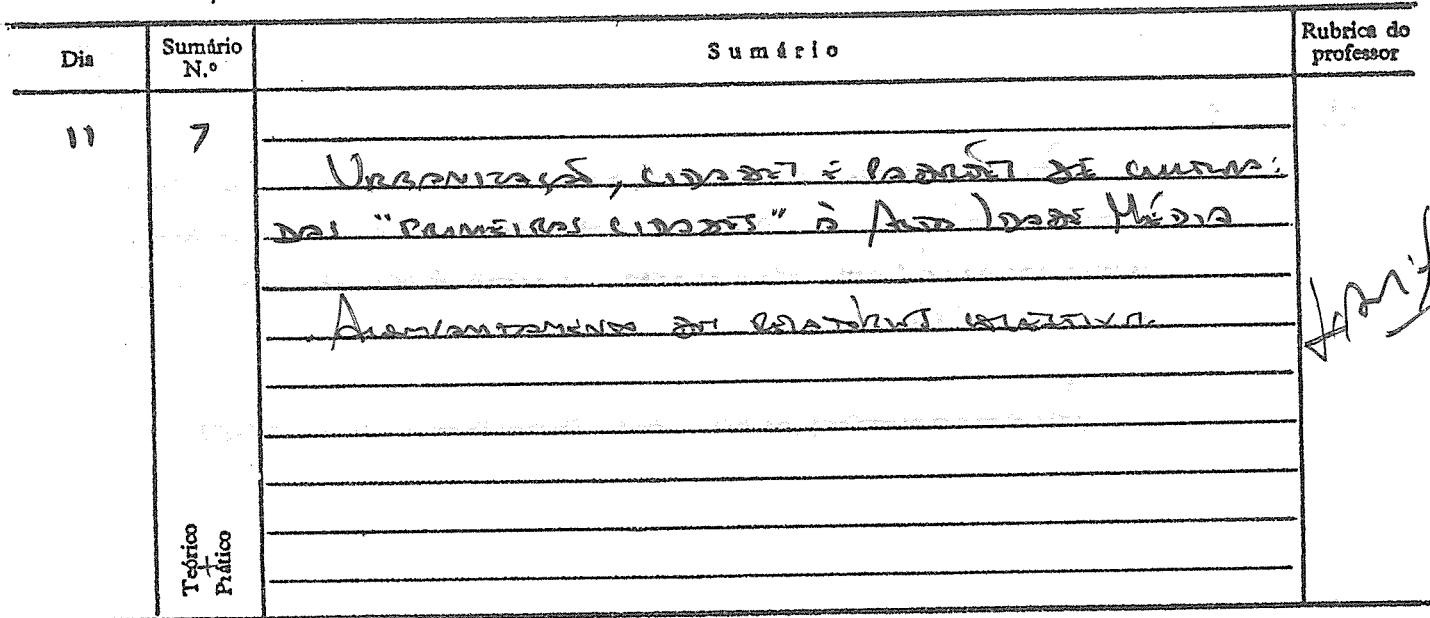 Dia Sumário N.º Sumário Rubrica do professor
11 7
Urbanização, cidades e padrões de cultura:
das "primeiras cidades" à Alta Idade Média
Acompanhamento de relatórios
Teórico + Prático